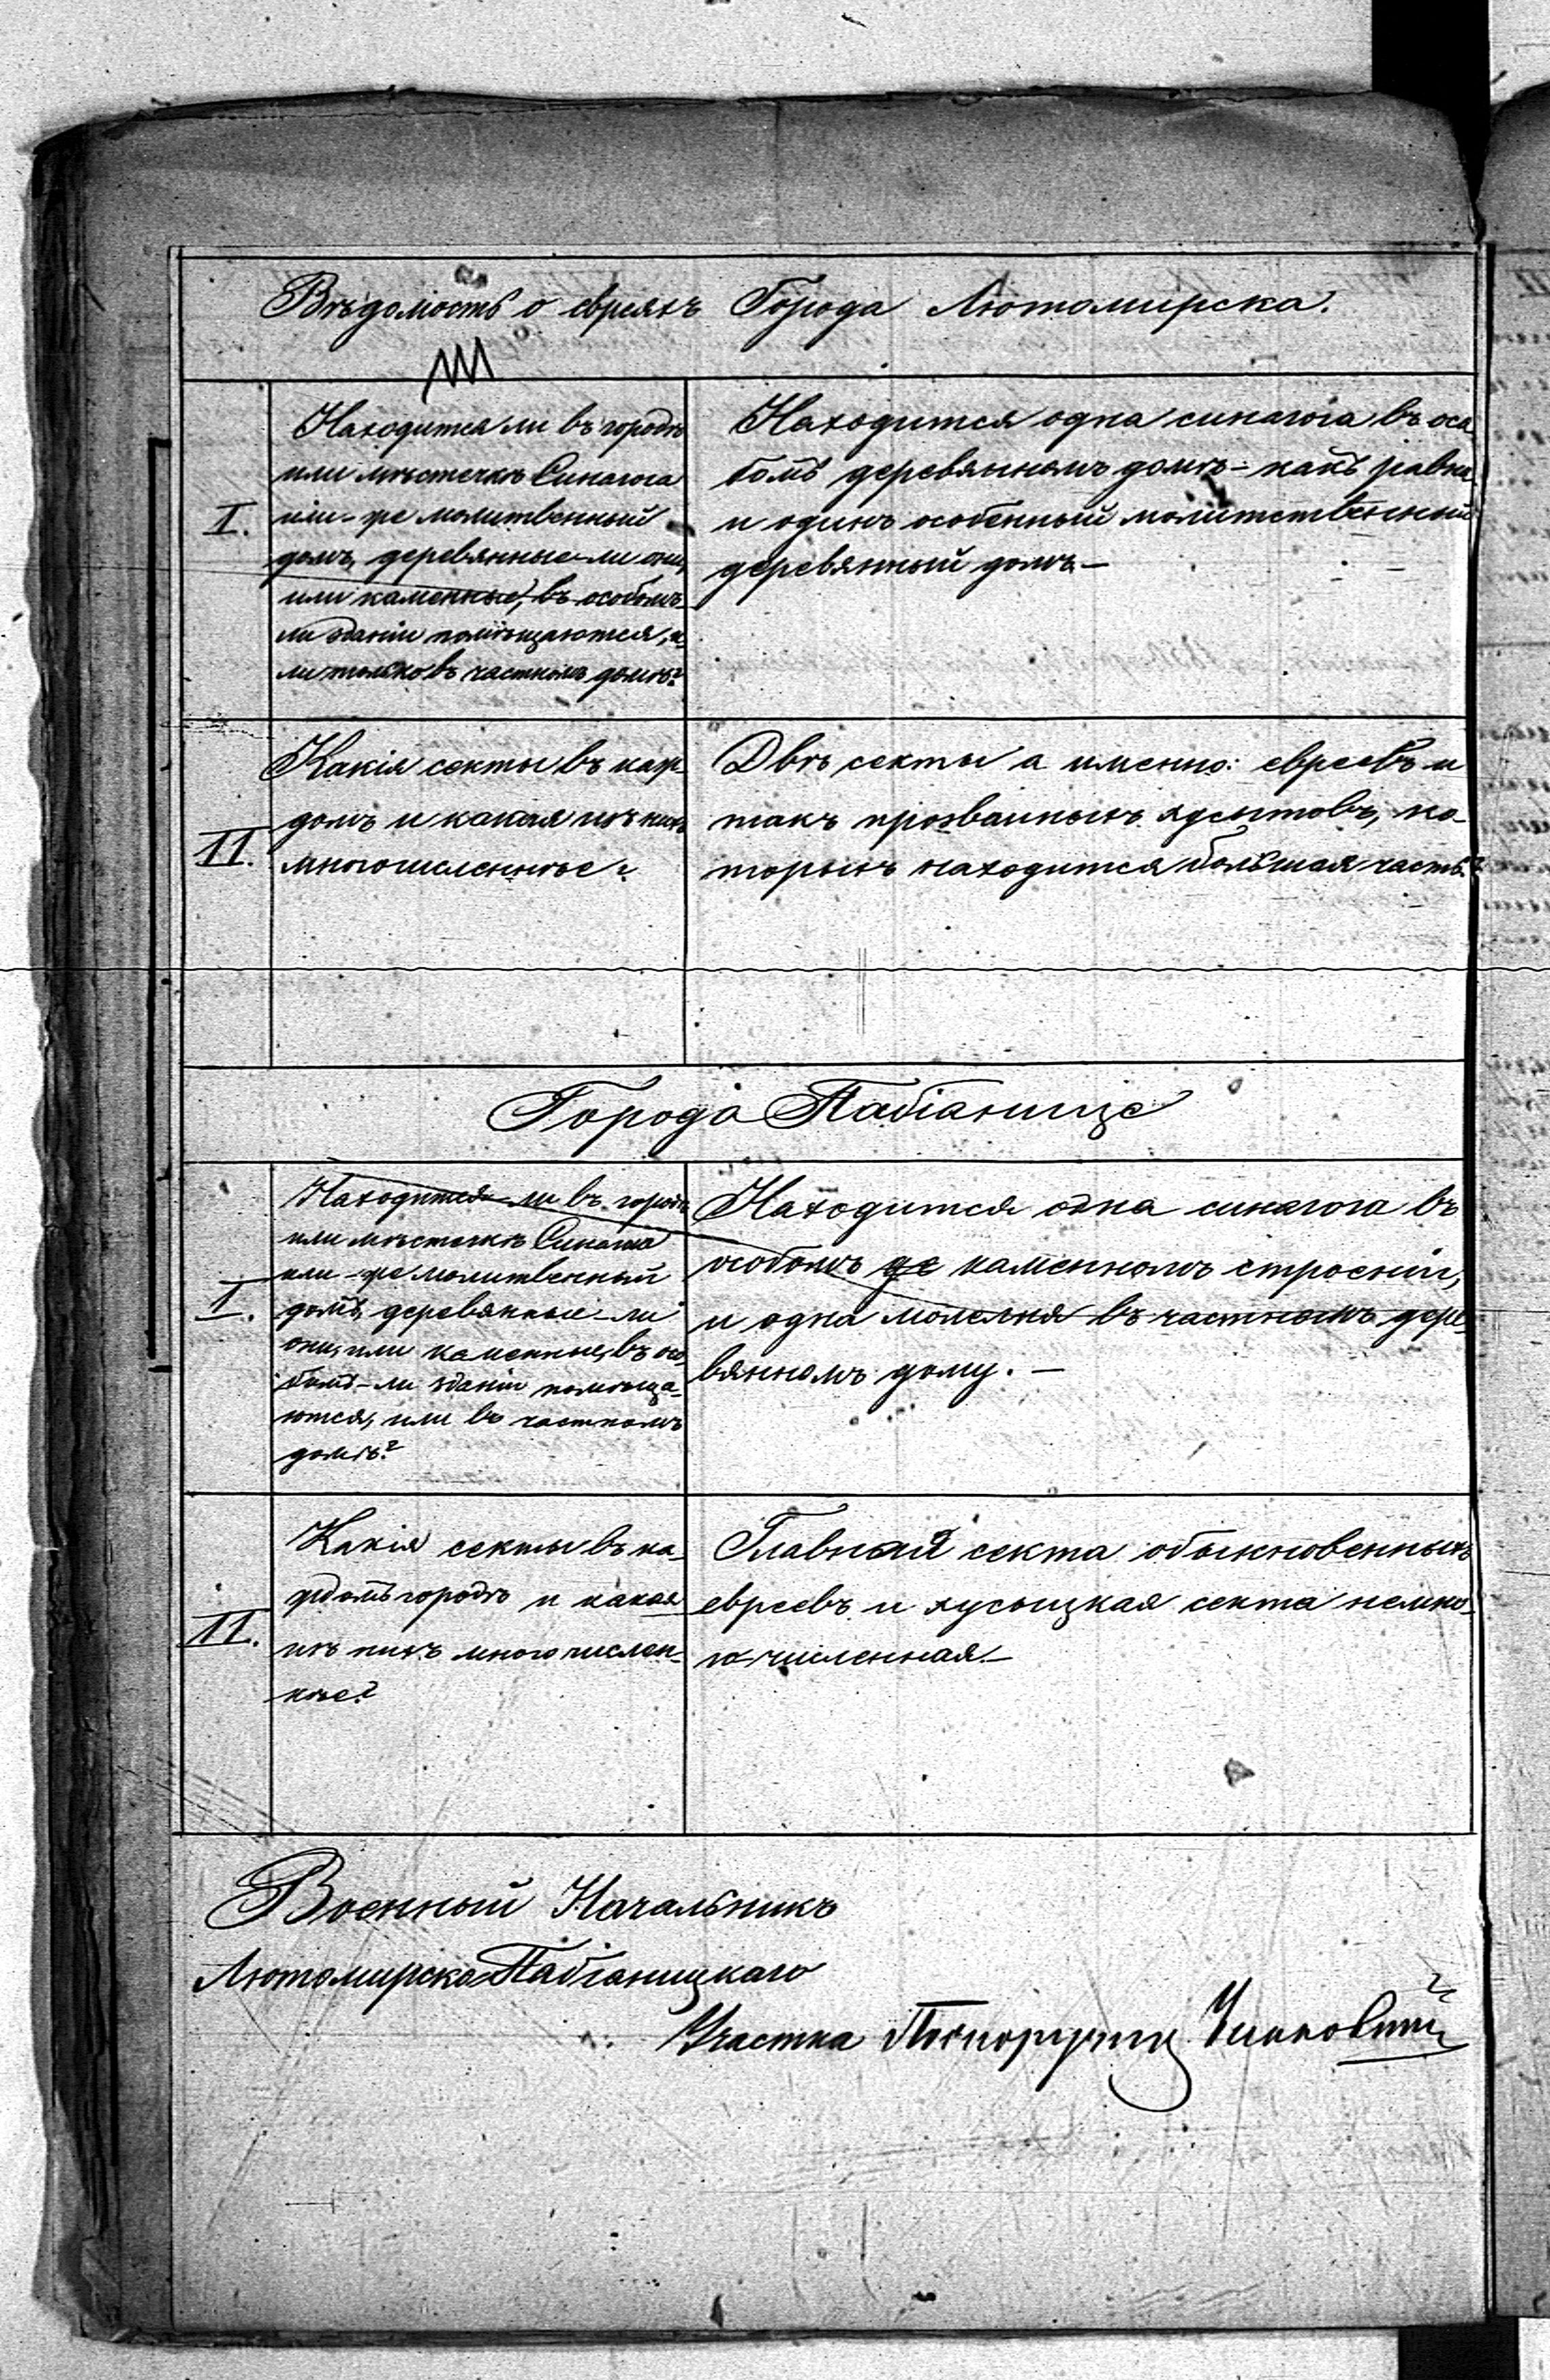 Вѣдомость о евреяхъ Города Лютомирска.
I.
Находится ли въ городѣ
или мѣстечкѣ Синагога
или-же молитвенный
домъ, деревянные-ли они,
или каменные, въ особомъ
ли зданіи помѣщаются, и-
ли только въ частномъ домѣ?
Находится одна синагога въ осо-
бомъ деревянномъ домѣ - какъ равно
и одинъ особенный молитственный
деревянный домъ. —
II.
Какія секты въ каж-
домъ и какая изъ нихъ
многочисленнѣе?
Двѣ секты а именно: евреевъ и
такъ прозванныхъ хусытовъ, ко-
торыхъ находится большая часть.
Города Пабіанице
I.
Находится-ли въ городѣ
или мѣстечкѣ Синагога
или-же молитвенный
домъ, деревянные-ли
они, или каменные, въ осо-
бомъ-ли зданіи помѣща-
ются, или въ частномъ
домѣ?
Находится одна синагога въ
особомъ же каменномъ строеніи,
и одна молельня въ частномъ дере-
вянномъ дому. —
II.
Какія секты въ ка-
ждомъ городѣ и какая
изъ нихъ многочислен-
нѣе?
Главная секта обыкновенныхъ
евреевъ и хусыцкая секта немно-
гочисленная. —
Военный Начальникъ
Лютомирско Пабіаницкаго
Участка Поспоручикъ